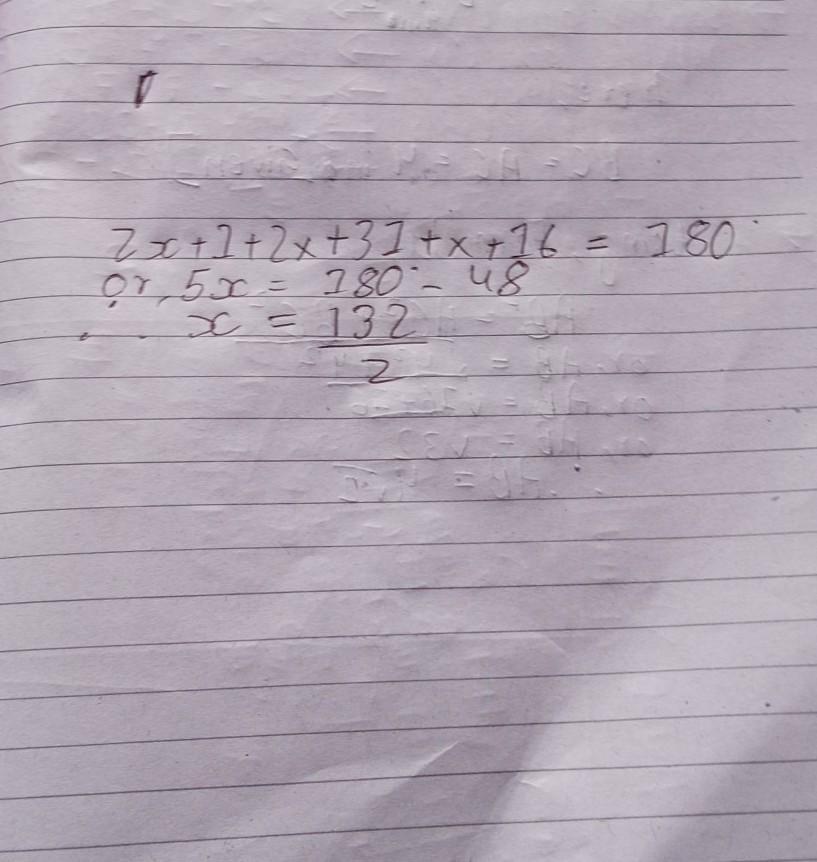 2x+1+2x+31+x+16 = 180°
or, 5x = 180° - 48
x = 132
2